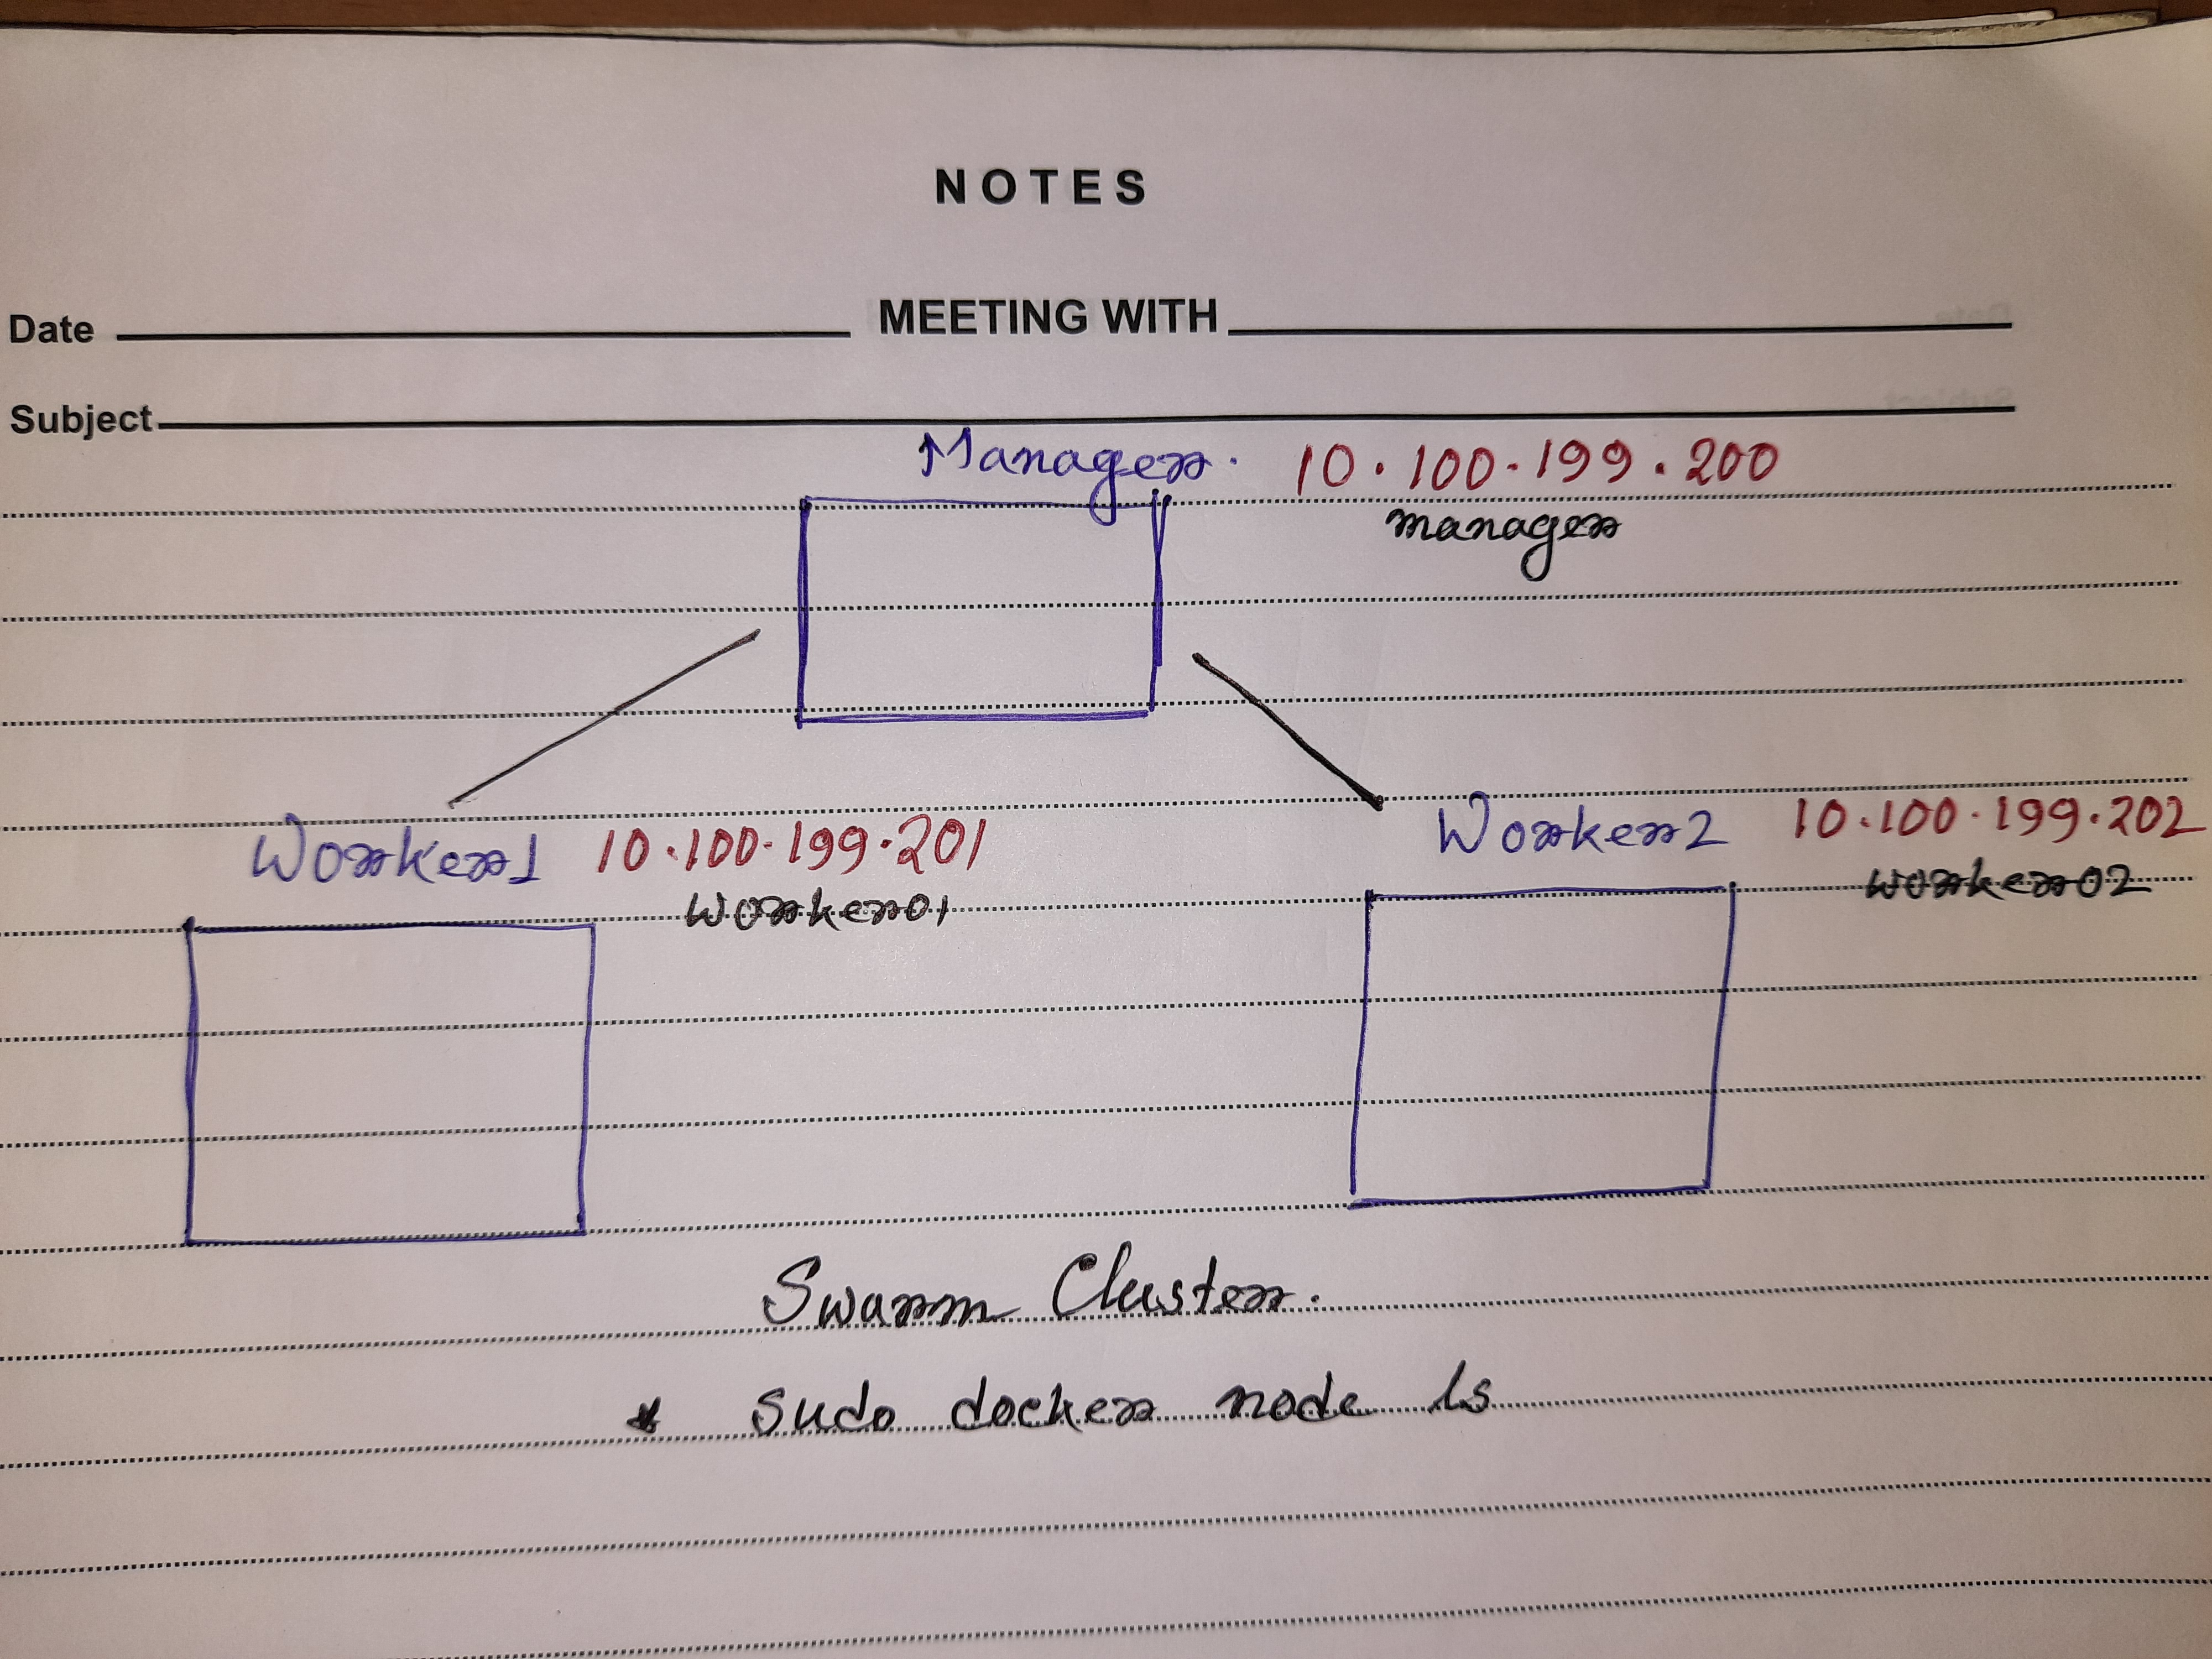 NOTES
Date MEETING WITH
Subject
Manager. 10.100.199.200
manager
Worker1 10.100.199.201
worker01
Worker2 10.100.199.202
worker02
Swarm Cluster.
* sudo docker node ls